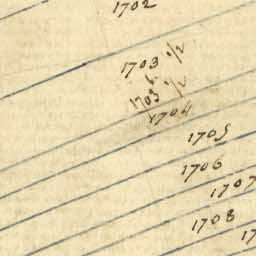 1702
1703 1/2
6
1703 1/2
1704
1705
1706
1707
1708